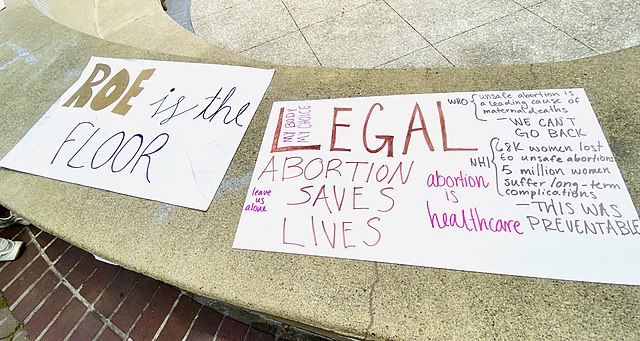 ROE is the
FLOOR
MY BODY
MY CHOICE
LEGAL
ABORTION
SAVES
LIVES
leave
us
alone
abortion
is
healthcare
WHO { unsafe abortion is
a leading cause of
maternal deaths
— WE CAN'T
GO BACK
NHI { 68K women lost
to unsafe abortions
5 million women
suffer long-term
complications
— THIS WAS
PREVENTABLE